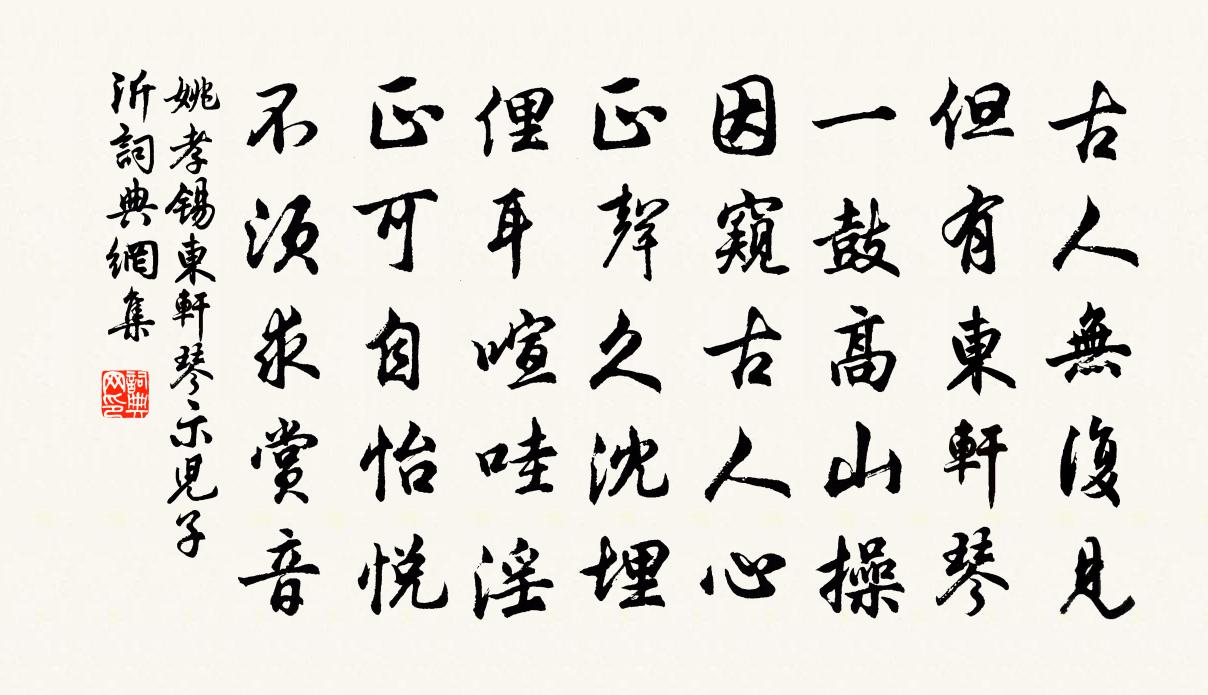 古人無復見
但有東軒琴
一鼓高山操
因窺古人心
正聲久沈埋
俚耳喧哇淫
正可自怡悅
不須求賞音
姚孝錫東軒琴示児子
沂詞典網集
詞典網印